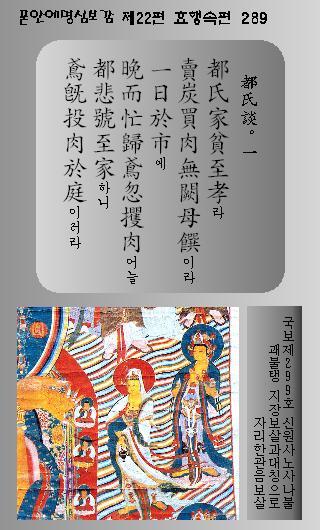 꿈안에명심보감 제22편 효행속편 289
都氏談。一
都氏家貧至孝라
賣炭買肉無闕母饌이라
一日於市에
晩而忙歸鳶忽攫肉어늘
都悲號至家하니
鳶旣投肉於庭이러라
국보제299호 신원사노사나불
괘불탱 지장보살과대칭으로
자리한관음보살